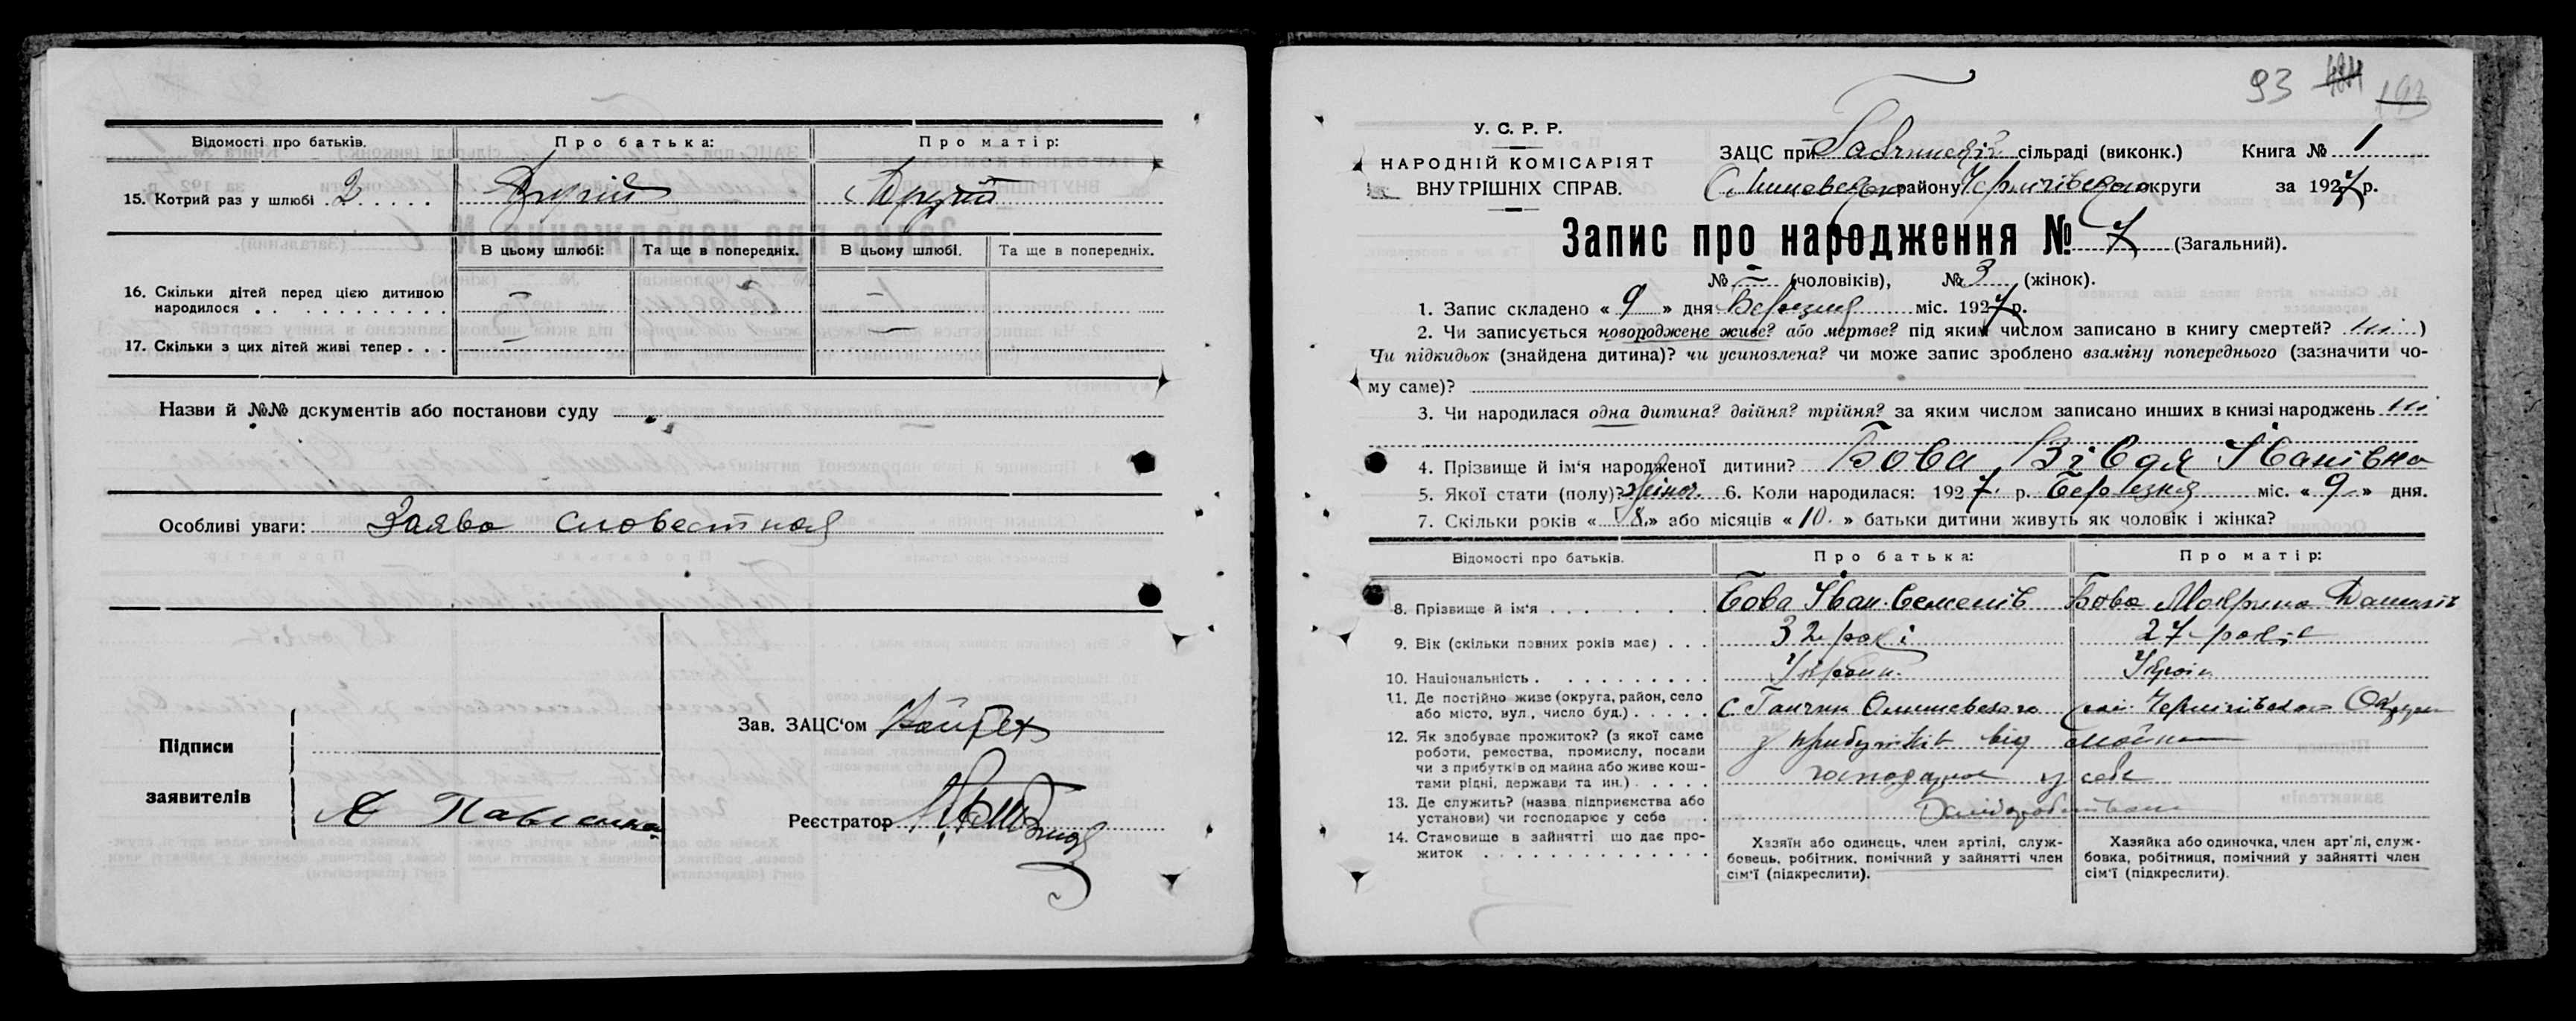 Відомості про батьків. Про батька: Про матір:
15. Котрий раз у шлюбі 2 Другий Другий
В цьому шлюбі: Та ще в попередніх. В цьому шлюбі. Та ще в попередніх.
16. Скільки дітей перед цією дитиною — —
народилося —
17. Скільки з цих дітей живі тепер —
Назви й №№ документів або постанови суду
Особливі уваги: Заява словестная
Підписи
заявителів
Зав. ЗАЦС'ом
Реєстратор
93 193
У. С. Р. Р.
НАРОДНІЙ КОМІСАРІЯТ
ВНУТРІШНІХ СПРАВ.
ЗАЦС при сільраді (виконк.) Книга № 1
району округи за 1927 р.
Запис про народження № 7 (Загальний).
№ — (чоловіків), № 3 (жінок).
1. Запис складено « 9 » дня Березня міс. 1927 р.
2. Чи записується новороджене живе? або мертве? під яким числом записано в книгу смертей? ні )
Чи підкидьок (знайдена дитина)? чи усиновлена? чи може запис зроблено взаміну попереднього (зазначити чо-
му саме)?
3. Чи народилася одна дитина? двійня? трійня? за яким числом записано инших в книзі народжень ні
4. Прізвище й ім'я народженої дитини? Бова Вівдя Іванівна
5. Якої стати (полу)? жіноч. 6. Коли народилася: 1927. р. Березня міс. « 9 » дня.
7. Скільки років « » або місяців « 10. » батьки дитини живуть як чоловік і жінка?
Відомості про батьків. Про батька: Про матір:
8. Прізвище й ім'я Бова Іван Семенів Бова Мокрина
9. Вік (скільки повних років має) 32 рокі 27 років
10. Національність
11. Де постійно живе (округа, район, село
або місто, вул., число буд.) с Олишевского рай. Чернігівской Округи
12. Як здобуває прожиток? (з якої саме
роботи, ремества, промислу, посади
чи з прибутків од майна або живе кош-
тами рідні, держави та ин.) з прибутків від
13. Де служить? (назва підприємства або
установи) чи господарює у себе господарює у себе
14. Становище в зайнятті що дає про-
житок
Хазяїн або одинець, член артілі, служ-
бовець, робітник, помічний у зайнятті член
сім'ї (підкреслити).
Хазяйка або одиночка, член арт'лі, служ-
бовка, робітниця, помічний у зайнятті член
сім'ї (підкреслити).